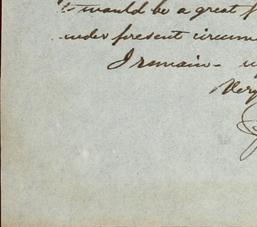 it would be a great
under present circum
I remain
Very